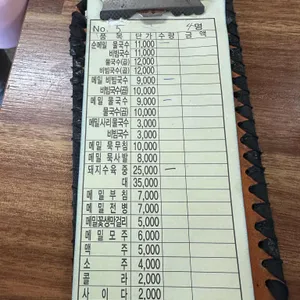 No. 5 4명
품 목 단 가 수 량 금 액
순메밀 물국수 11,000
비빔국수 11,000
물국수(곱) 12,000
비빔국수(곱) 12,000
메밀 비빔국수 9,000
비빔국수(곱) 10,000
메밀 물국수 9,000
물국수(곱) 10,000
메밀사리물국수 3,000
비빔국수 3,000
메밀 묵무침 10,000
메밀 묵사발 8,000
돼지수육 중 25,000
대 35,000
메밀부침 7,000
메밀전병 7,000
메밀꽃생막걸리 5,000
메밀모주 6,000
맥주 5,000
소주 4,000
콜라 2,000
사이다 2,000